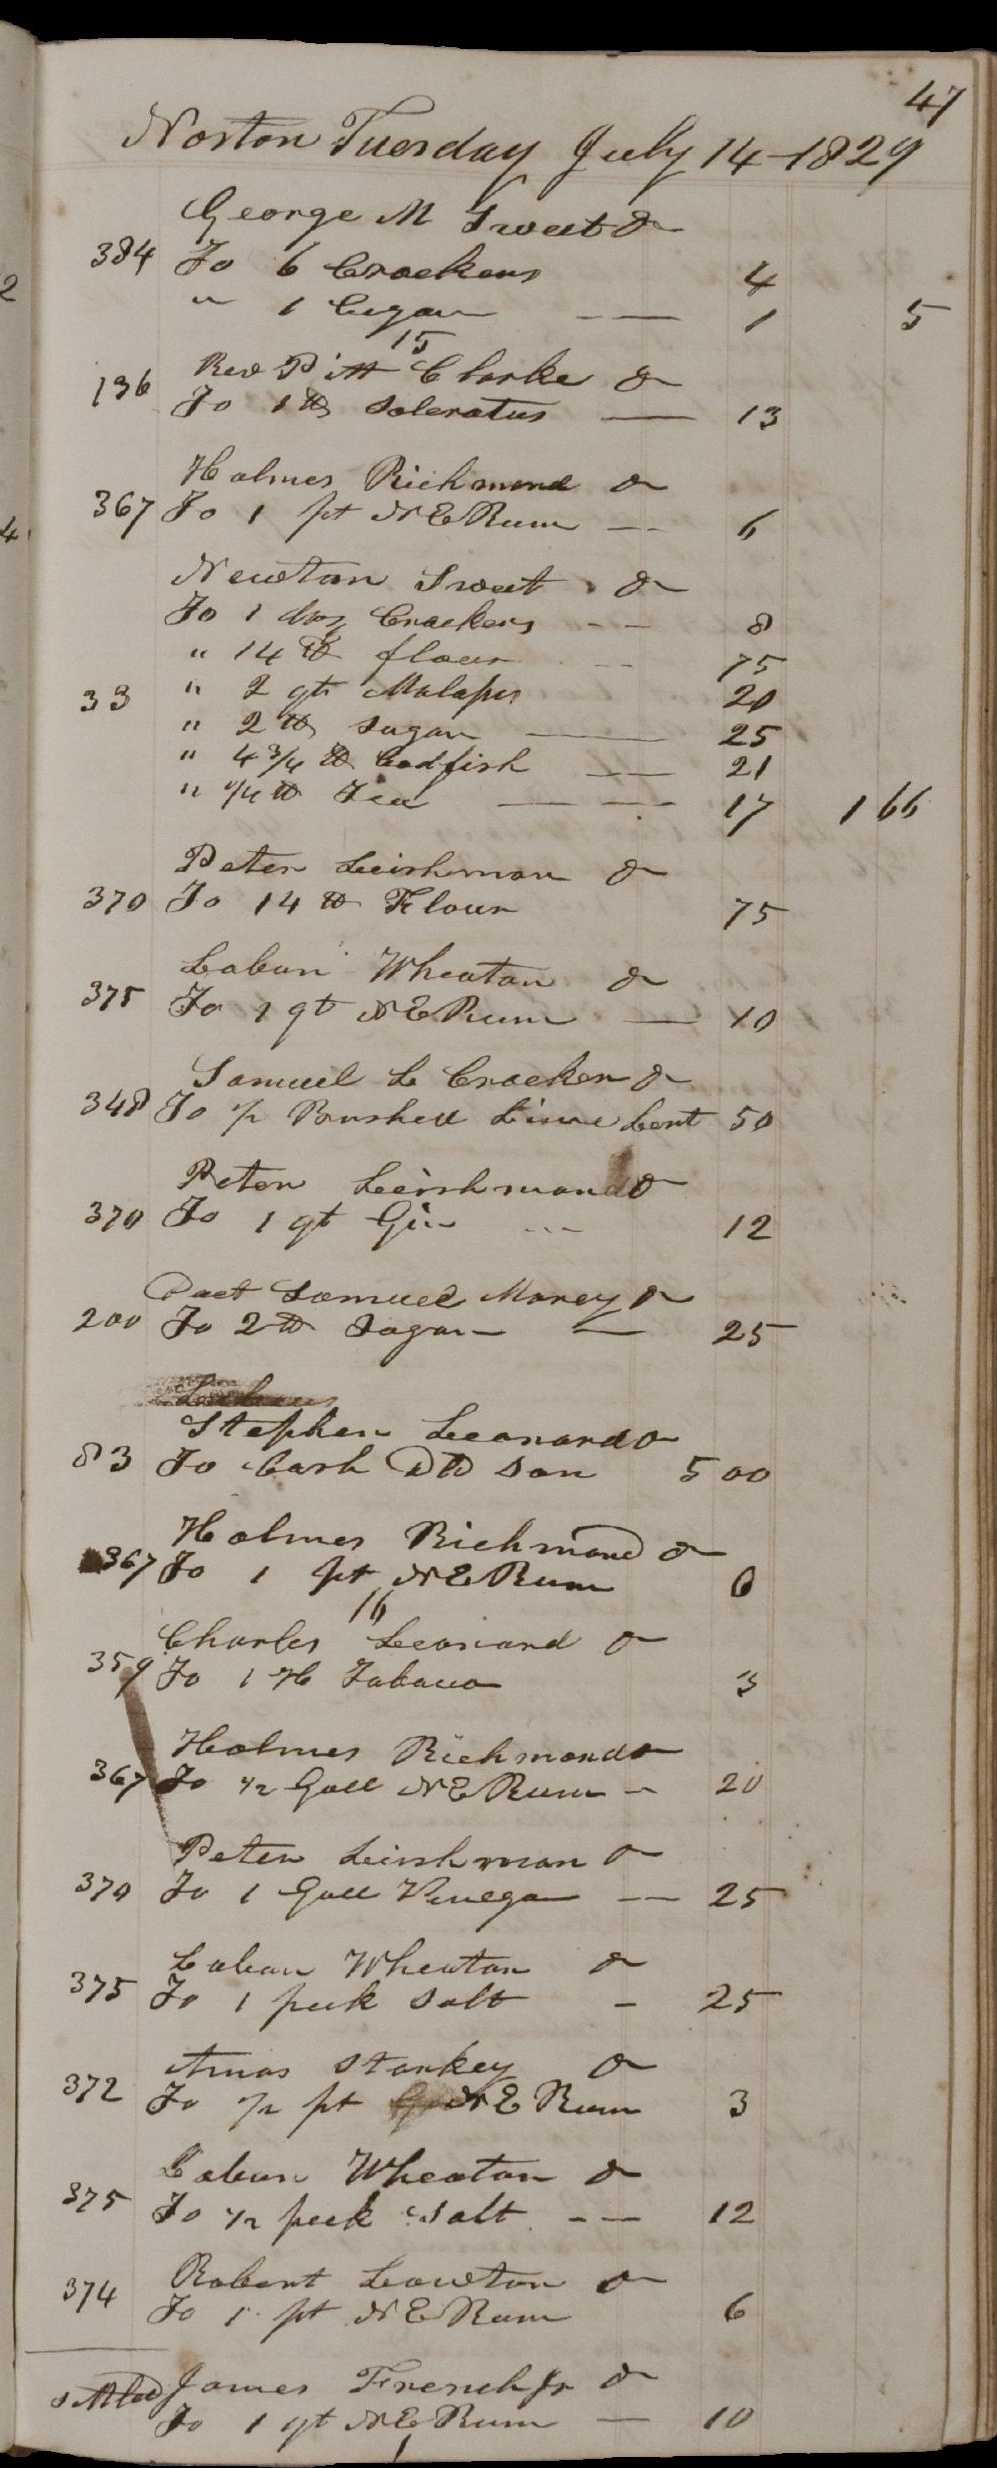 47
Norton Tuesday July 14 1829
George M Sweet Dr
384 To 6 Crackers 4
" 1 Cigar 1 5
15
Rev Pitt Clarke Dr
136 To 1 lb Saleratus 13
Holmes Richmond Dr
367 To 1 pt N E Rum 6
Newton Sweet Dr
To 1 doz Crackers 8
" 14 lb flour 75
33 " 2 qts Molasses 20
" 2 lb Sugar 25
" 4 3/4 lb Codfish 21
" 1/4 lb Tea 17 1 66
Peter Leishman Dr
370 To 14 lb Flour 75
Laban Wheaton Dr
375 To 1 qt N E Rum 10
Samuel L Crocker Dr
348 To 1/2 Bushell Lime Lent 50
Peter Leishman Dr
370 To 1 qt Gin 12
Doct Samuel Morey Dr
200 To 2 lb Sugar 25
Stephen Leonard Dr
83 To Cash Dld Son 5 00
Holmes Richmond Dr
367 To 1 pt N E Rum 6
16
Charles Leonard Dr
359 To 1 H Tobacco 3
Holmes Richmond Dr
367 To 1/2 Gall N E Rum 20
Peter Leishman Dr
370 To 1 Gall Vinegar 25
Laban Wheaton Dr
375 To 1 peck Salt 25
Amos Starkey Dr
372 To 1/2 pt N E Rum 3
Laban Wheaton Dr
375 To 1/2 peck Salt 12
Robert Lawton Dr
374 To 1 pt N E Rum 6
settled James French Jr Dr
To 1 qt N E Rum 10